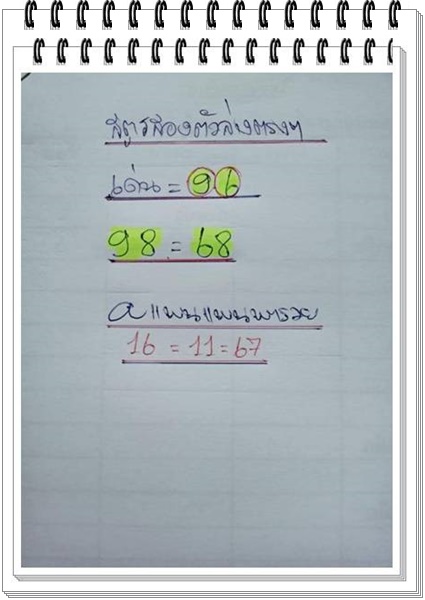 สูตรสองตัวล่างตรงๆ
เด่น = 96
98 = 68
a แพนแพนพารวย
16 = 11 = 67